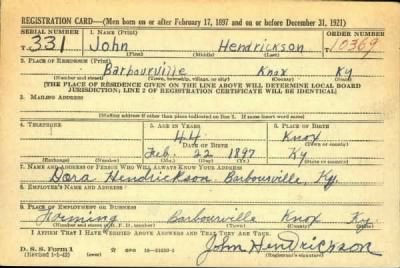 REGISTRATION CARD—(Men born on or after February 17, 1897 and on or before December 31, 1921)
SERIAL NUMBER 1. NAME (Print) ORDER NUMBER
T 331 John Hendrickson 10369
(First) (Middle) (Last)
2. PLACE OF RESIDENCE (Print)
Barbourville Knox Ky
(Number and street) (Town, township, village, or city) (County) (State)
[THE PLACE OF RESIDENCE GIVEN ON THE LINE ABOVE WILL DETERMINE LOCAL BOARD
JURISDICTION; LINE 2 OF REGISTRATION CERTIFICATE WILL BE IDENTICAL]
3. MAILING ADDRESS
[Mailing address if other than place indicated on line 2. If same insert word same]
4. TELEPHONE 5. AGE IN YEARS 6. PLACE OF BIRTH
44 Knox
DATE OF BIRTH (Town or county)
Feb. 22 1897 Ky
(Exchange) (Number) (Mo.) (Day) (Yr.) (State or country)
7. NAME AND ADDRESS OF PERSON WHO WILL ALWAYS KNOW YOUR ADDRESS
Dora Hendrickson Barbourville, Ky.
8. EMPLOYER'S NAME AND ADDRESS
9. PLACE OF EMPLOYMENT OR BUSINESS
Farming Barbourville Knox Ky.
(Number and street or R. F. D. number) (Town) (County) (State)
I AFFIRM THAT I HAVE VERIFIED ABOVE ANSWERS AND THAT THEY ARE TRUE.
D. S. S. Form 1
(Revised 1-1-42) (over) GPO John Hendrickson
(Registrant's signature)